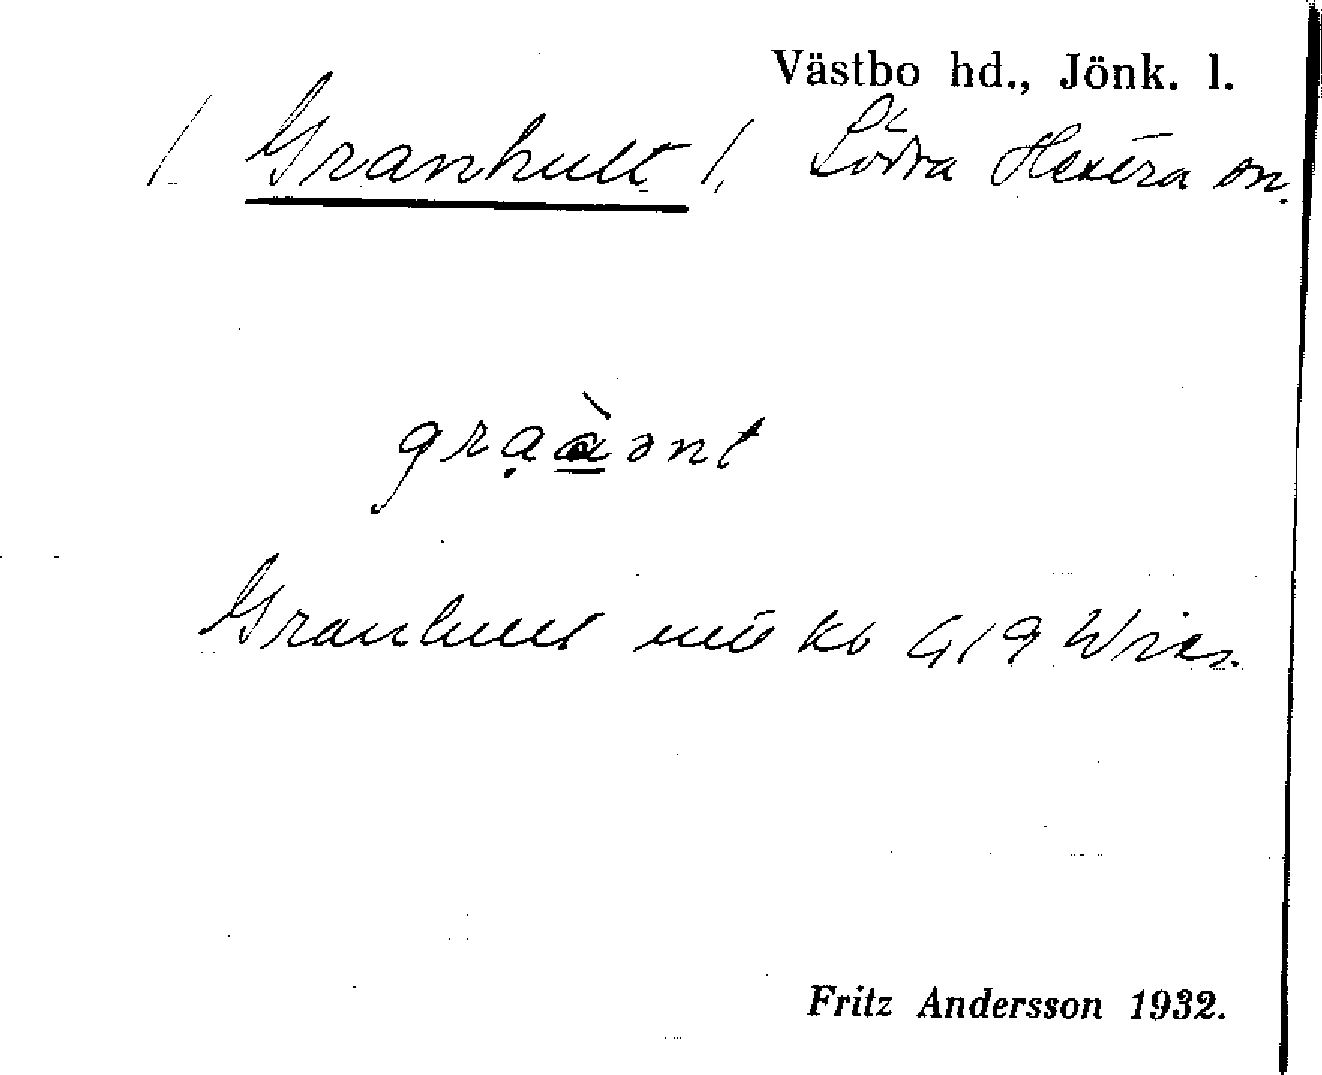 Västbo hd., Jönk. l.
/ Granhult /. Södra Hestra sn.
graàənt
Granhult
Fritz Andersson 1932.